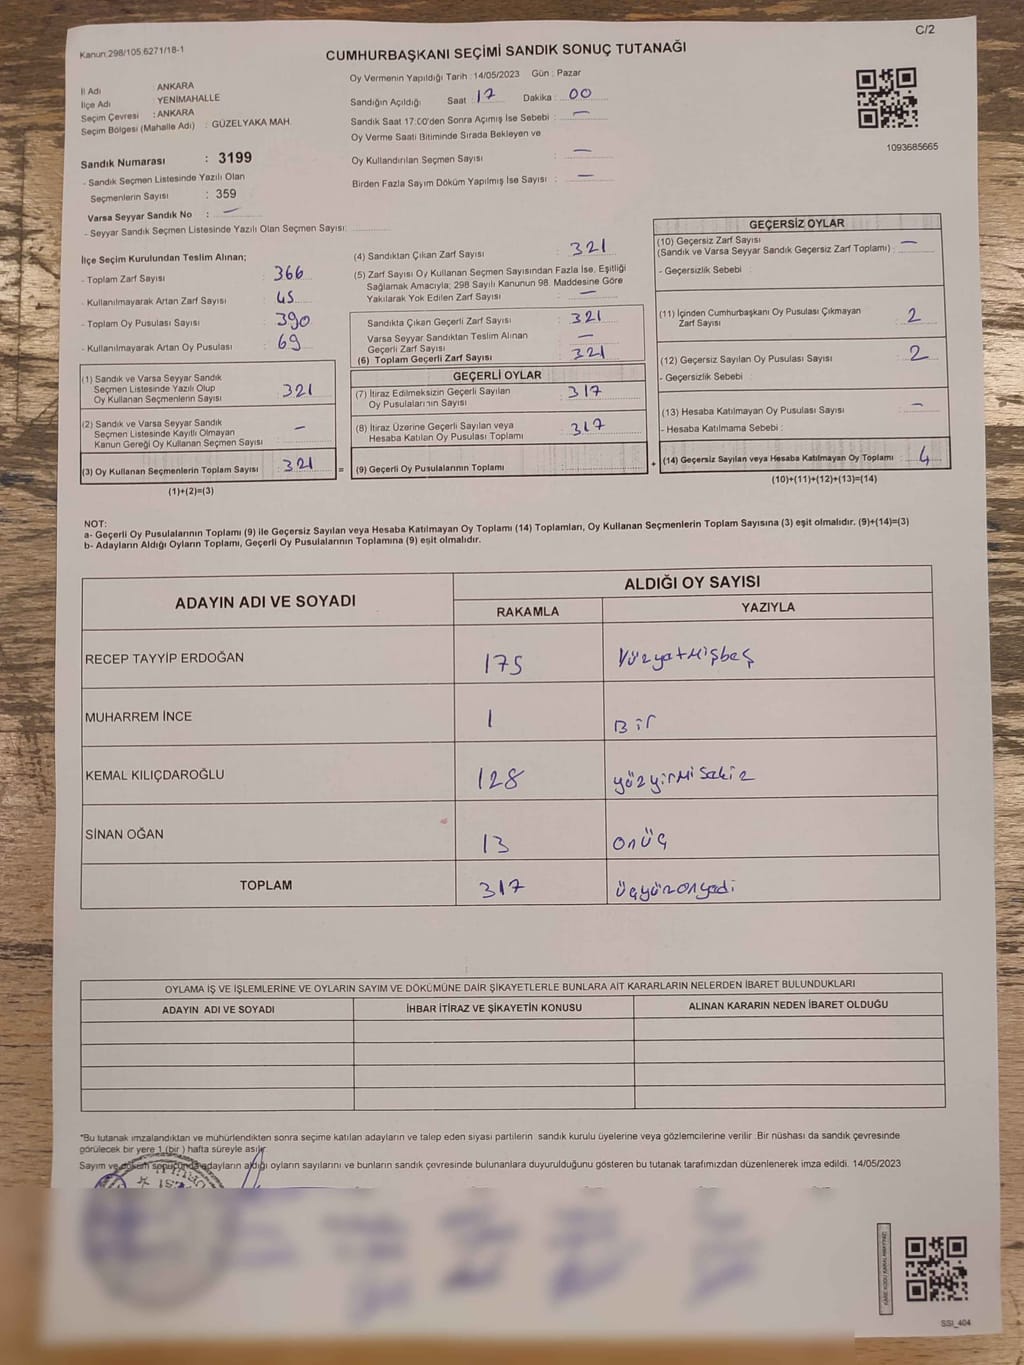 Kanun:298/105.6271/18-1
C/2
CUMHURBAŞKANI SEÇİMİ SANDIK SONUÇ TUTANAĞI
İl Adı ANKARA
İlçe Adı YENİMAHALLE
Seçim Çevresi : ANKARA
Seçim Bölgesi (Mahalle Adı) : GÜZELYAKA MAH.
Sandık Numarası : 3199
- Sandık Seçmen Listesinde Yazılı Olan
Seçmenlerin Sayısı : 359
Varsa Seyyar Sandık No : —
- Seyyar Sandık Seçmen Listesinde Yazılı Olan Seçmen Sayısı:
Oy Vermenin Yapıldığı Tarih : 14/05/2023 Gün : Pazar
Sandığın Açıldığı Saat : 17 Dakika : 00
Sandık Saat 17:00'den Sonra Açımış İse Sebebi : —
Oy Verme Saati Bitiminde Sırada Bekleyen ve
Oy Kullandırılan Seçmen Sayısı : —
Birden Fazla Sayım Döküm Yapılmış İse Sayısı : —
1093685665
İlçe Seçim Kurulundan Teslim Alınan;
- Toplam Zarf Sayısı : 366
- Kullanılmayarak Artan Zarf Sayısı : 45
- Toplam Oy Pusulası Sayısı : 390
- Kullanılmayarak Artan Oy Pusulası : 69
(1) Sandık ve Varsa Seyyar Sandık
Seçmen Listesinde Yazılı Olup
Oy Kullanan Seçmenlerin Sayısı : 321
(2) Sandık ve Varsa Seyyar Sandık
Seçmen Listesinde Kayıtlı Olmayan
Kanun Gereği Oy Kullanan Seçmen Sayısı : —
(3) Oy Kullanan Seçmenlerin Toplam Sayısı : 321
(1)+(2)=(3)
(4) Sandıktan Çıkan Zarf Sayısı : 321
(5) Zarf Sayısı Oy Kullanan Seçmen Sayısından Fazla İse, Eşitliği
Sağlamak Amacıyla; 298 Sayılı Kanunun 98. Maddesine Göre
Yakılarak Yok Edilen Zarf Sayısı : —
Sandıkta Çıkan Geçerli Zarf Sayısı : 321
Varsa Seyyar Sandıktan Teslim Alınan
Geçerli Zarf Sayısı : —
(6) Toplam Geçerli Zarf Sayısı : 321
GEÇERLİ OYLAR
(7) İtiraz Edilmeksizin Geçerli Sayılan
Oy Pusulalarının Sayısı : 317
(8) İtiraz Üzerine Geçerli Sayılan veya
Hesaba Katılan Oy Pusulası Toplamı : 317
= (9) Geçerli Oy Pusulalarının Toplamı : +
GEÇERSİZ OYLAR
(10) Geçersiz Zarf Sayısı
(Sandık ve Varsa Seyyar Sandık Geçersiz Zarf Toplamı) : —
- Geçersizlik Sebebi :
(11) İçinden Cumhurbaşkanı Oy Pusulası Çıkmayan
Zarf Sayısı : 2
(12) Geçersiz Sayılan Oy Pusulası Sayısı : 2
- Geçersizlik Sebebi :
(13) Hesaba Katılmayan Oy Pusulası Sayısı : —
- Hesaba Katılmama Sebebi :
(14) Geçersiz Sayılan veya Hesaba Katılmayan Oy Toplamı : 4
(10)+(11)+(12)+(13)=(14)
NOT:
a- Geçerli Oy Pusulalarının Toplamı (9) ile Geçersiz Sayılan veya Hesaba Katılmayan Oy Toplamı (14) Toplamları, Oy Kullanan Seçmenlerin Toplam Sayısına (3) eşit olmalıdır. (9)+(14)=(3)
b- Adayların Aldığı Oyların Toplamı, Geçerli Oy Pusulalarının Toplamına (9) eşit olmalıdır.
ADAYIN ADI VE SOYADI ALDIĞI OY SAYISI
RAKAMLA YAZIYLA
RECEP TAYYİP ERDOĞAN 175 Yüzyetmişbeş
MUHARREM İNCE 1 Bir
KEMAL KILIÇDAROĞLU 128 yüzyirmisekiz
SİNAN OĞAN 13 onüç
TOPLAM 317 üçyüzonyedi
OYLAMA İŞ VE İŞLEMLERİNE VE OYLARIN SAYIM VE DÖKÜMÜNE DAİR ŞİKAYETLERLE BUNLARA AİT KARARLARIN NELERDEN İBARET BULUNDUKLARI
ADAYIN ADI VE SOYADI İHBAR İTİRAZ VE ŞİKAYETİN KONUSU ALINAN KARARIN NEDEN İBARET OLDUĞU
*Bu tutanak imzalandıktan ve mühürlendikten sonra seçime katılan adayların ve talep eden siyasi partilerin sandık kurulu üyelerine veya gözlemcilerine verilir. Bir nüshası da sandık çevresinde
görülecek bir yere 1 (bir) hafta süreyle asılır.
Sayım ve döküm sonucunda adayların aldığı oyların sayılarını ve bunların sandık çevresinde bulunanlara duyurulduğunu gösteren bu tutanak tarafımızdan düzenlenerek imza edildi. 14/05/2023
SSI_404